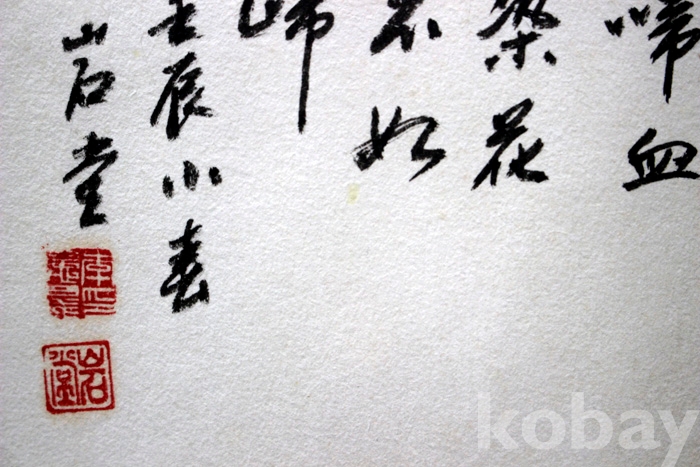 啼血
染花
不如
歸
壬辰小春
岩堂
岩堂
kobay